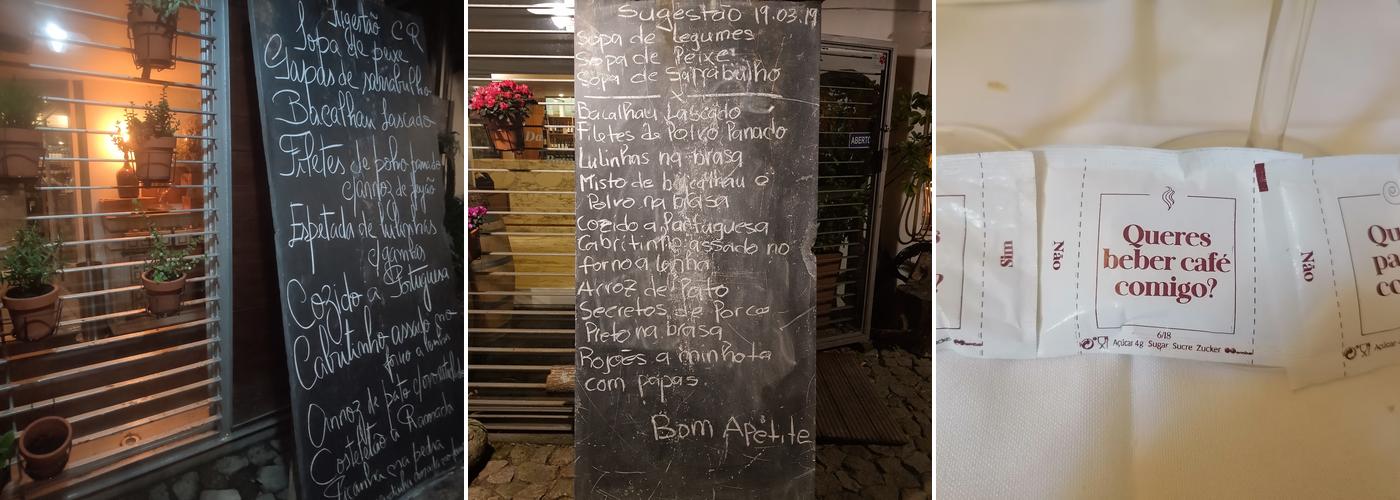 Sugestão CR
Sopa de peixe
Papas de sarrabulho
Bacalhau lascado
Filetes de polvo panado
c/arroz de feijão
Espetada de lulinhas
c/gambas
Cozido à Portuguesa
Cabritinho assado no
forno a lenha
Arroz de pato
Costeletão à Ramada
Picanha na pedra
Sugestão 19.03.19
Sopa de legumes
Sopa de Peixe
Sopa de Sarrabulho
Bacalhau Lascado
Filetes de Polvo Panado
Lulinhas na brasa
Misto de bacalhau e
Polvo na brasa
Cozido a Portuguesa
Cabritinho assado no
forno a lenha
Arroz de Pato
Secretos de Porco
Preto na brasa
Rojoēs a minhota
com papas.
Bom Apetite
ABERTO
Sim
Não
Queres
beber café
comigo?
6/18
Açúcar 4g Sugar Sucre Zucker
Não
Qu
pa
co
Açúcar